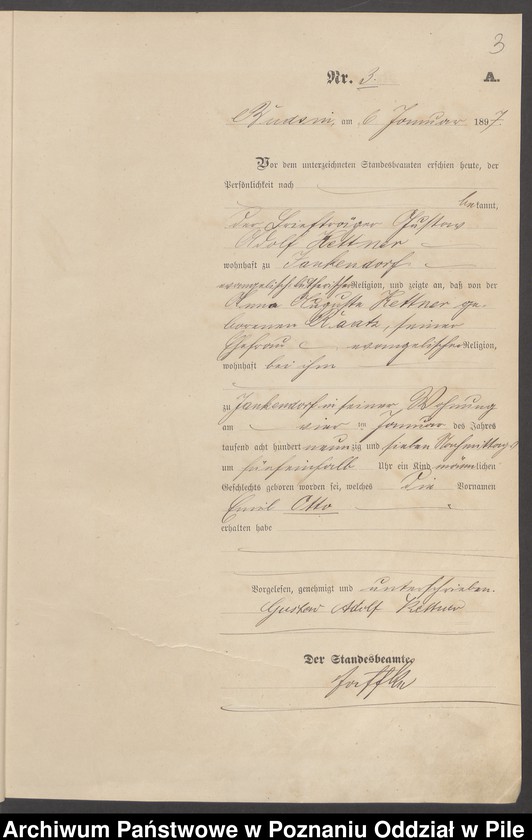 3
Nr. 3. A.
Budsin, am 6 Januar 1897.
Vor dem unterzeichneten Standesbeamten erschien heute, der
Persönlichkeit nach
bekannt,
der Briefträger Gustav
Adolf Kettner
wohnhaft zu Jankendorf
evangelisch lutherischer Religion, und zeigte an, daß von der
Anna Auguste Kettner ge-
borenen Raatz, seiner
Ehefrau evangelischer Religion,
wohnhaft bei ihm
zu Jankendorf in seiner Wohnung
am vier ten Januar des Jahres
tausend acht hundert neunzig und sieben Nachmittags
um fünfeinhalb Uhr ein Kind männlichen
Geschlechts geboren worden sei, welches die Vornamen
Emil Otto
erhalten habe
Vorgelesen, genehmigt und unterschrieben.
Gustav Adolf Kettner
Der Standesbeamte
Archiwum Państwowe w Poznaniu Oddział w Pile